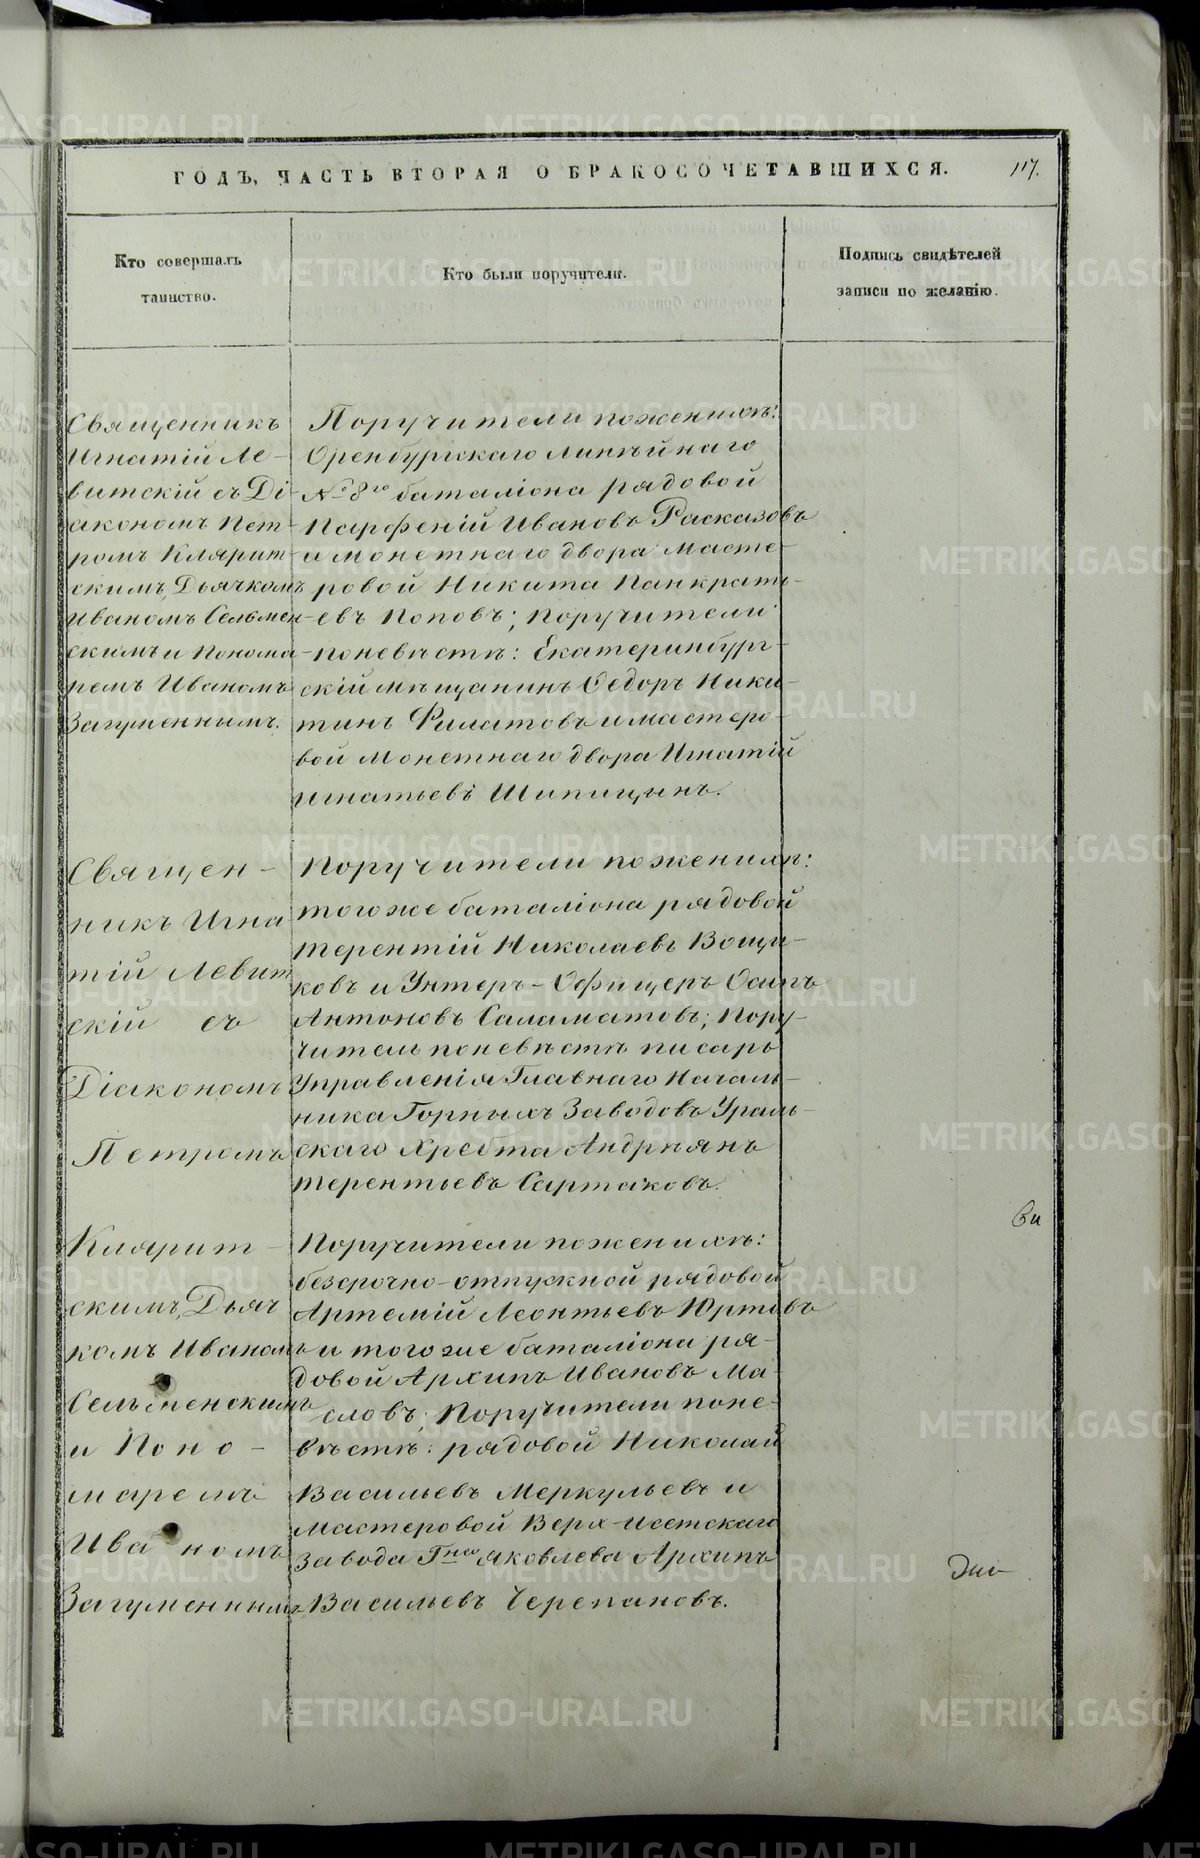 ГОДЪ, ЧАСТЬ ВТОРАЯ О БРАКОСОЧЕТАВШИХСЯ.
117.
Кто совершалъ
таинство.
Кто были поручители.
Подпись свидѣтелей
записи по желанію.
Священникъ
Игнатій Ле-
витскій съ Ді-
акономъ Пет-
ромъ Клярит-
скимъ, Дьячкомъ
Иваномъ Сельмен-
скимъ и Понома-
ремъ Иваномъ
Загуменнымъ.
Поручители по женихѣ:
Оренбургскаго Линѣйнаго
№ 8го баталіона рядовой
Парфеній Ивановъ Расказовъ
и монетнаго двора Масте-
ровой Никита Панкрать-
евъ Поповъ; Поручители
по невѣстѣ: Екатеринбург-
скій мѣщанинъ Ѳедоръ Ники-
тинъ Филатовъ и мастеро-
вой Монетнаго двора Игнатій
Игнатьевъ Шипицынъ.
Священ-
никъ Игна
тій Левит
скій съ
Діакономъ
Петромъ
Клярит-
скимъ, Дьяч
комъ Иваномъ
Сельменскимъ
и Поно-
маремъ
Иваномъ
Загуменнымъ
Поручители по женихѣ:
того же баталіона рядовой
Терентій Николаевъ Вощи-
ковъ и Унтеръ-Офицеръ Осипъ
Антоновъ Саламатовъ; Пору-
чители по невѣстѣ писарь
Управленія Главнаго Началь-
ника Горныхъ Заводовъ Ураль-
скаго Хребта Андрѣянъ
Терентьевъ Сартаковъ.
Поручители по женихѣ:
безсрочно-отпускной рядовой
Артемій Леонтьевъ Юртовъ
и того же баталіона ря-
довой Архипъ Ивановъ Ма-
словъ; Поручители по не-
вѣстѣ: рядовой Николай
Васильевъ Меркульевъ и
Мастеровой Верх-Исетскаго
завода Гна Яковлева Архипъ
Васильевъ Черепановъ.
METRIKI.GASO-URAL.RU